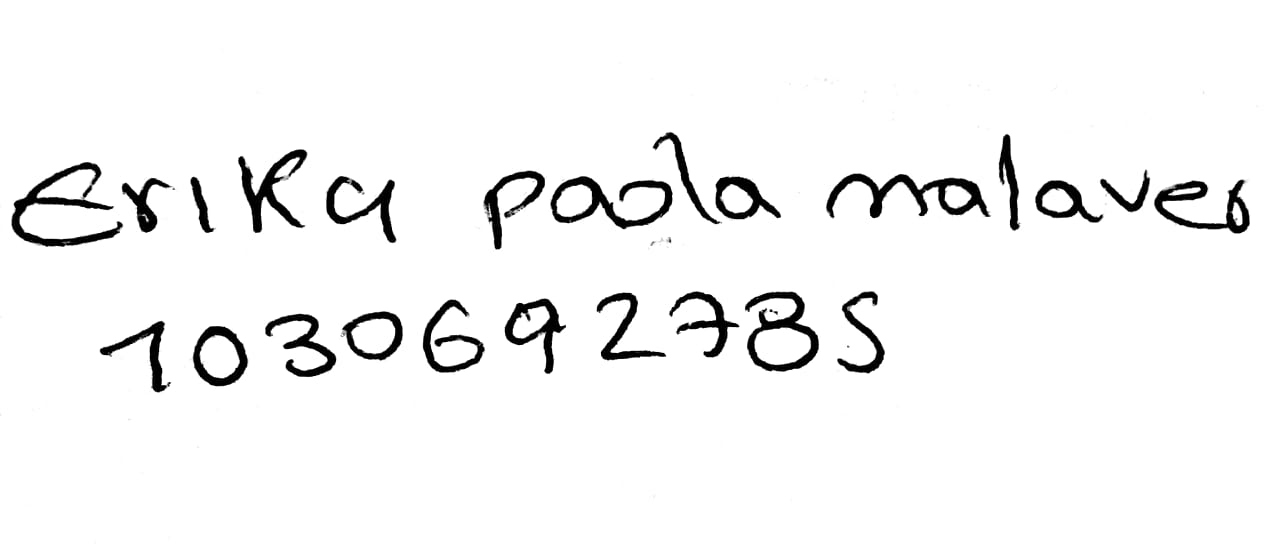 Erika paola malaver
1030692785